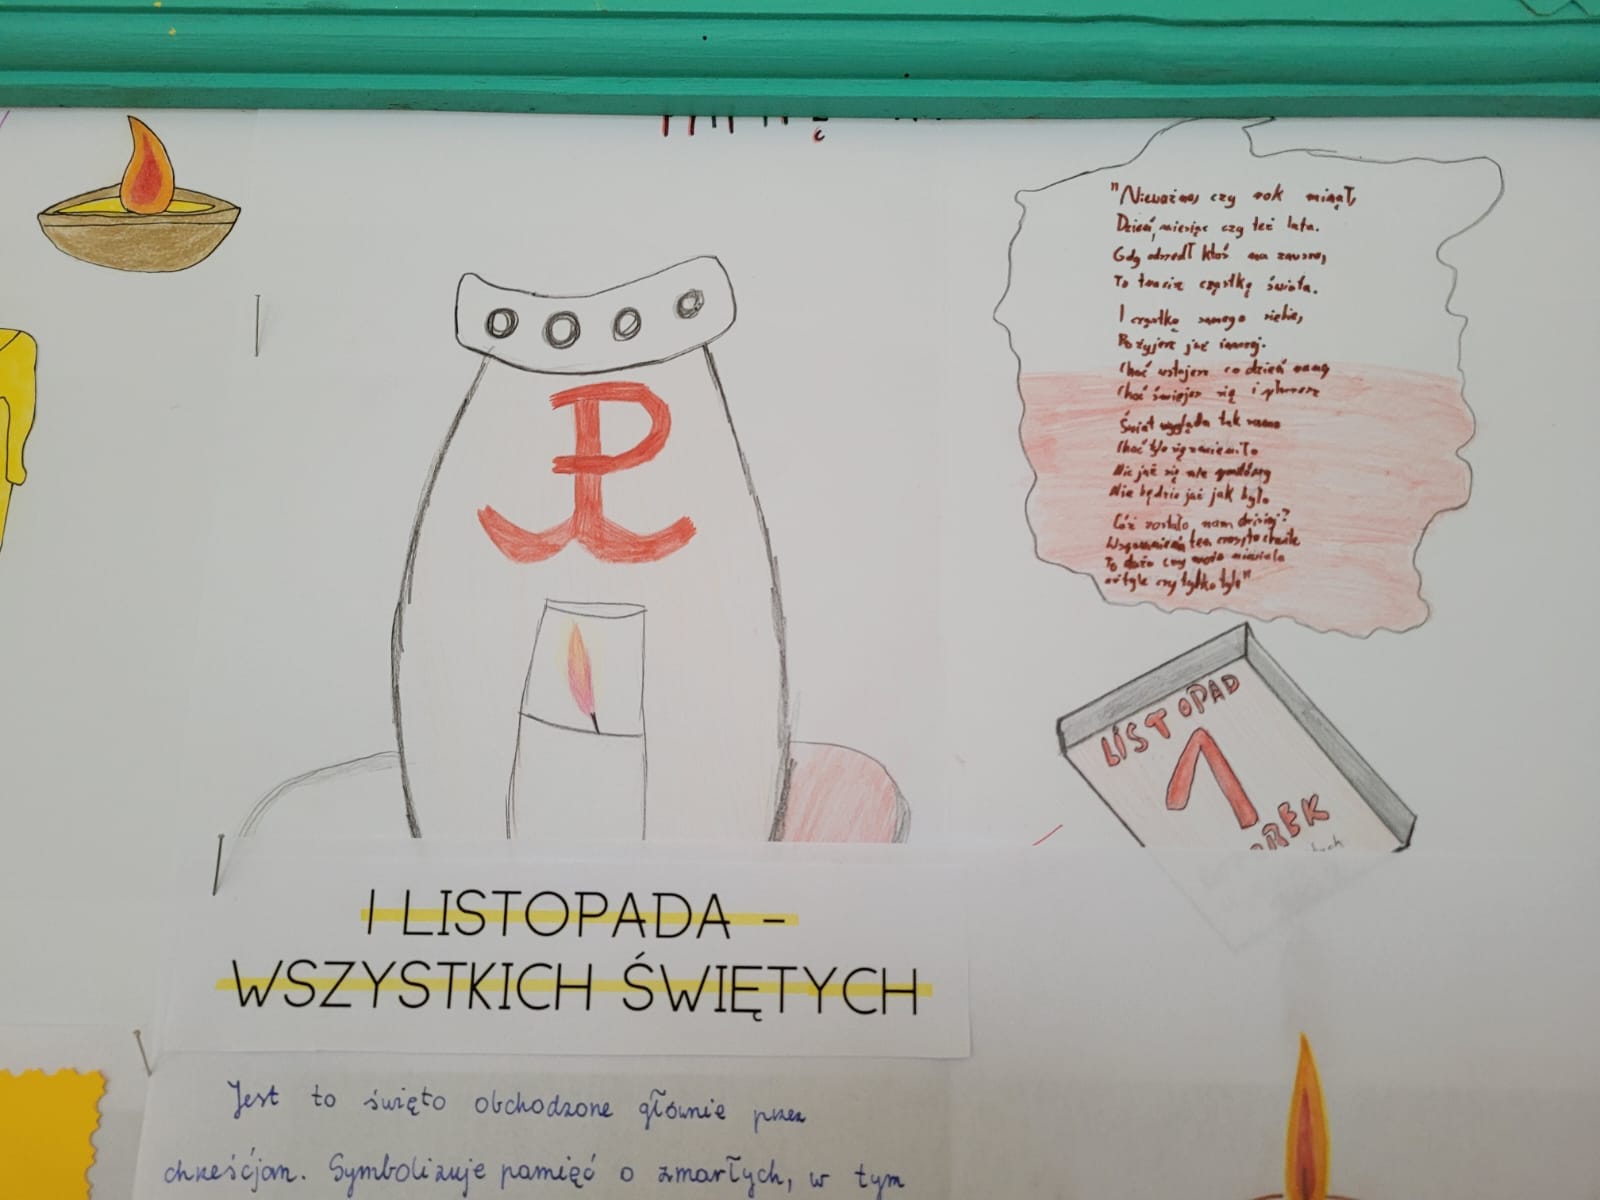 "Nieważne, czy rok minął,
Dzień, miesiąc czy też lata.
Gdy odszedł ktoś na zawsze,
To tracisz cząstkę świata.
I cząstkę samego siebie,
Pożyjesz już inaczej.
Choć wstajesz co dzień rano
Choć śmiejesz się i płaczesz
Świat wygląda tak samo
Choć tyle się zmieniło
Nic już się nie powtórzy
Nie będzie już jak było
Cóż zostało nam dzisiaj?
Wspomnienia ten czas
To dużo czy może niewiele
aż tyle czy tylko tyle"
LISTOPAD
1
I LISTOPADA -
WSZYSTKICH ŚWIĘTYCH
Jest to święto obchodzone głównie przez
chrześcjan. Symbolizuje pamięć o zmarłych, w tym